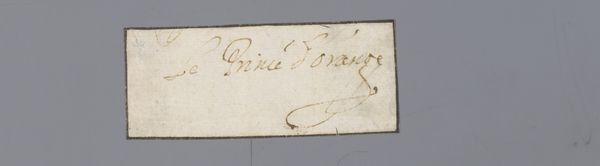 Le Prince d'orange